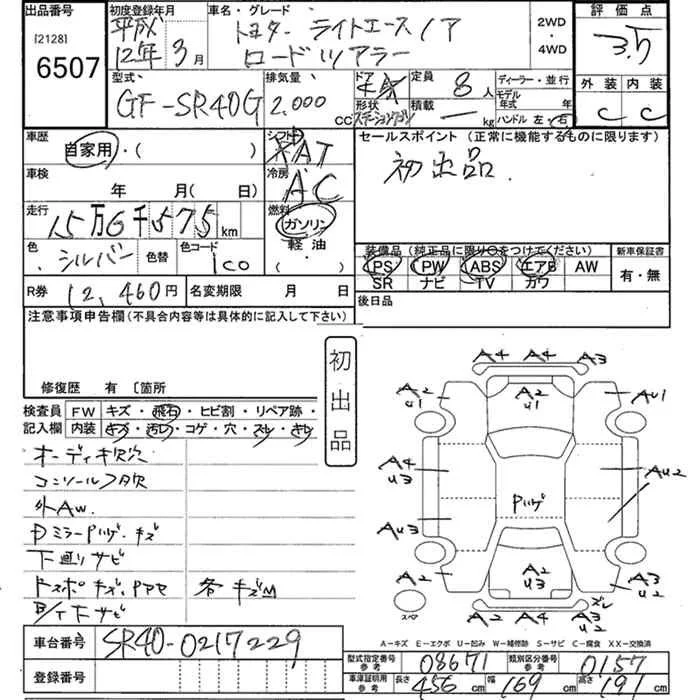 出品番号
[2128]
6507
初度登録年月
平成
12年 3月
車名・グレード
トヨタ ライトエースノア
ロードツアラー
2WD
・
4WD
評価点
3.5
外装 内装
C C
型式
GF-SR40G
排気量
2,000
CC
ドア
形状
ステーションワゴン
定員 8 人
積載 ー kg
ディーラー・並行
モデル
年式 年
ハンドル 左・右
車歴
自家用・( )
シフト
AT
車検
年 月( 日)
冷房
AC
走行
15万6千575 km
燃料
ガソリン
軽油
( )
色
シルバー
色替
色コード
1C0
R券 12,460円
名変期限 月 日
セールスポイント (正常に機能するものに限ります)
初出品.
装備品 (純正品に限り○をつけてください)
PS PW ABS エアB AW
SR ナビ TV カワ
新車保証書
有・無
後日品
注意事項申告欄(不具合内容等は具体的に記入して下さい)
修復歴 有 〔箇所
初出品
検査員
記入欄
FW キズ・飛石・ヒビ割・リペア跡・
内装 キズ・汚レ・コゲ・穴・スレ・キレ
オーディオ欠穴
コンソールフタ欠
外AW.
Dミラー Pハゲ.キズ
下廻リサビ
各キズM
車台番号 SR40-0217229
登録番号
A4 A4 A3
A2
U1
A2
U1
AU1
A4
U3
AU2
Pハゲ
AU3
A2
A2
U3
A3
U2
A2 A4 A3
ズレ
スペア
A-キズ E-エクボ U-凹み W-補修跡 S-サビ C-腐食 XX-交換済
型式指定番号
参考
08671
類別区分番号
参考
0157
車庫証明用
参考
長さ 456 cm 幅 169 cm 高さ 191 cm